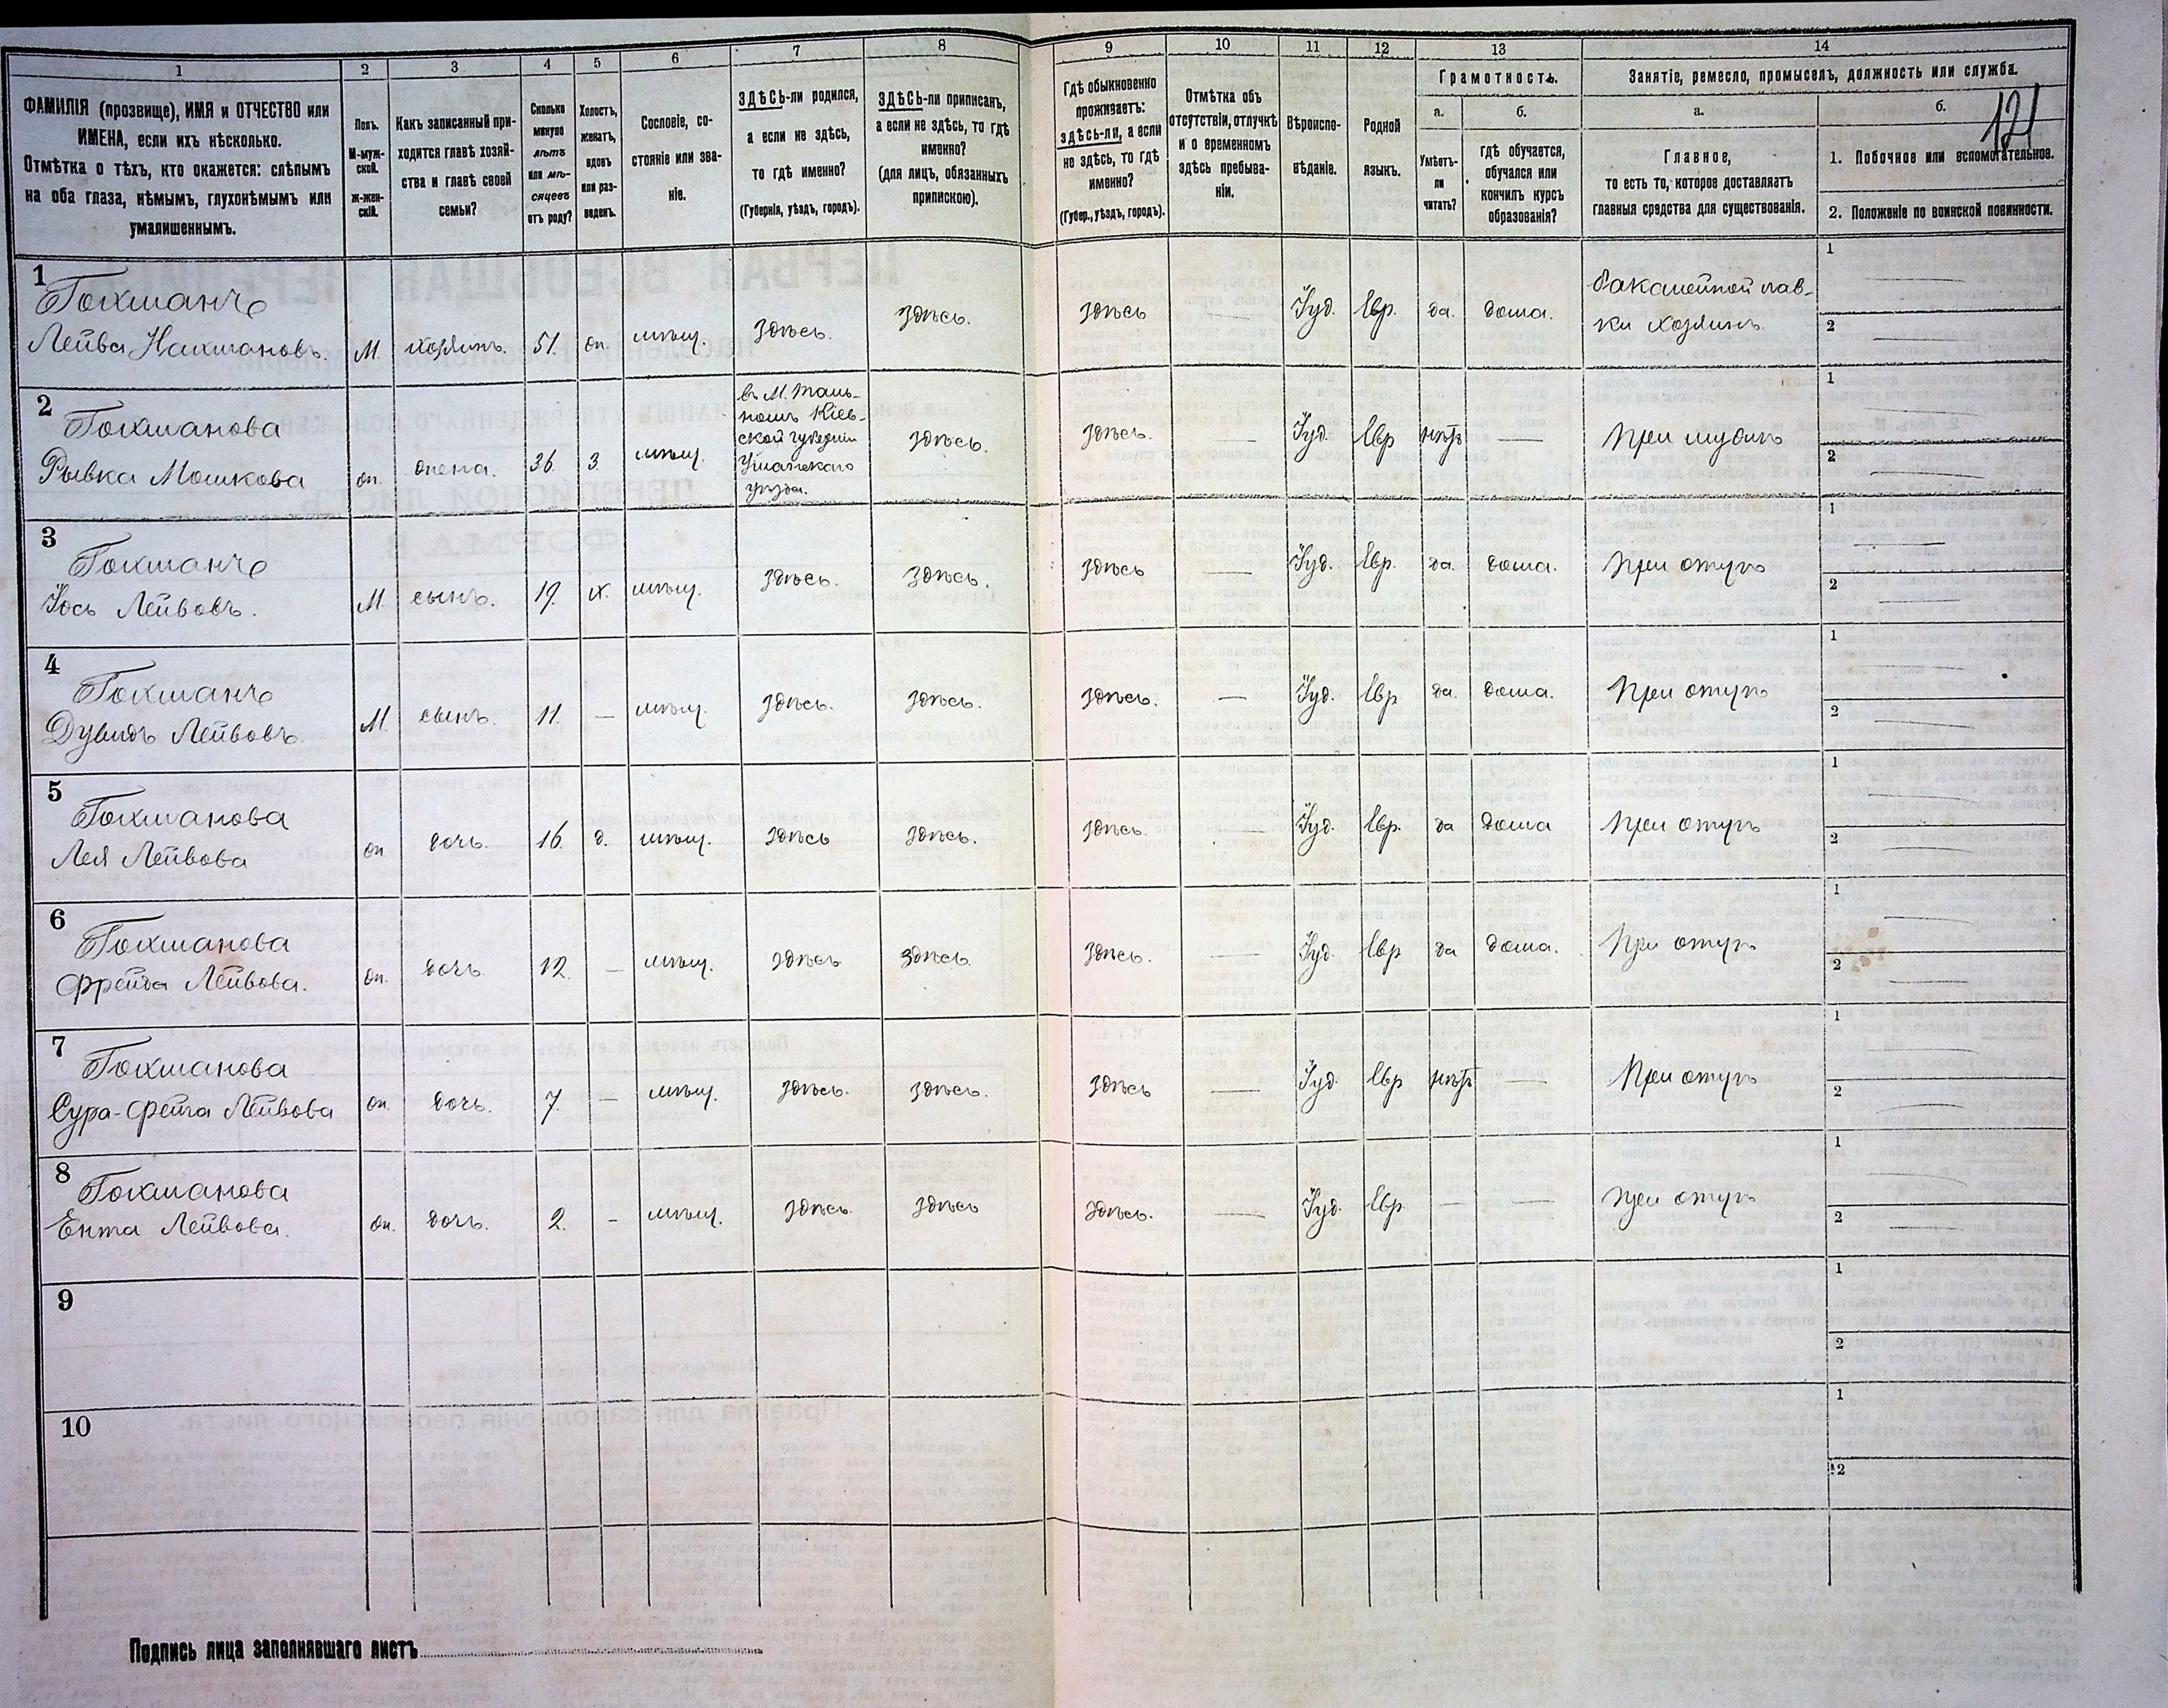 1 2 3 4 5 6 7 8 9 10 11 12 13 14
ФАМИЛІЯ (прозвище), ИМЯ и ОТЧЕСТВО или
ИМЕНА, если ихъ нѣсколько.
Отмѣтка о тѣхъ, кто окажется: слѣпымъ
на оба глаза, нѣмымъ, глухонѣмымъ или
умалишеннымъ.
Полъ.
М-муж-
ской.
Ж-жен-
скій.
Какъ записанный при-
ходится главѣ хозяй-
ства и главѣ своей
семьи?
Сколько
минуло
лѣтъ
или мѣ-
сяцевъ
отъ роду?
Холостъ,
женатъ,
вдовъ
или раз-
веденъ.
Сословіе, со-
стояніе или зва-
ніе.
ЗДѢСЬ-ли родился,
а если не здѣсь,
то гдѣ именно?
(Губернія, уѣздъ, городъ).
ЗДѢСЬ-ли приписанъ,
а если не здѣсь, то гдѣ
именно?
(для лицъ, обязанныхъ
припискою).
Гдѣ обыкновенно
проживаетъ:
здѣсь-ли, а если
не здѣсь, то гдѣ
именно?
(Губер., уѣздъ, городъ).
Отмѣтка объ
отсутствіи, отлучкѣ
и о временномъ
здѣсь пребыва-
ніи.
Вѣроиспо-
вѣданіе.
Родной
языкъ.
Грамотность.
а.
Умѣетъ-
ли
читать?
б.
гдѣ обучается,
обучался или
кончилъ курсъ
образованія?
Занятіе, ремесло, промыселъ, должность или служба.
а.
Главное,
то есть то, которое доставляетъ
главныя средства для существованія.
б.
121
1. Побочное или вспомогательное.
2. Положеніе по воинской повинности.
1 Гохманъ
Лейва Нахмановъ. М. хозяинъ. 51. ж. мѣщ. здѣсь. здѣсь. здѣсь — Іуд. Евр. да. дома. бакалейной лав-
ки хозяинъ. 1 — 2 —
2 Гохманова
Рывка Мошкова ж. жена. 36. з. мѣщ. въ М. Таль-
номъ Кіев-
ской губерніи
Уманскаго
уѣзда. здѣсь. здѣсь. — Іуд. Евр нѣтъ — при мужѣ 1 — 2 —
3 Гохманъ
Іось Лейвовъ. М. сынъ. 19. х. мѣщ. здѣсь. здѣсь. здѣсь — Іуд. Евр. да. дома. при отцѣ 1 — 2 —
4 Гохманъ
Дувидъ Лейвовъ. М. сынъ. 11. — мѣщ. здѣсь. здѣсь. здѣсь. — Іуд. Евр да. дома. при отцѣ 1 — 2 —
5 Гохманова
Лея Лейвова ж. дочь. 16. д. мѣщ. здѣсь здѣсь. здѣсь. — Іуд. Евр. да дома при отцѣ 1 — 2 —
6 Гохманова
Фрейда Лейвова. ж. дочь 12. — мѣщ. здѣсь здѣсь здѣсь. — Іуд. Евр да дома. при отцѣ 1 — 2 —
7 Гохманова
Сура-Фейга Лейвова ж. дочь. 7. — мѣщ. здѣсь. здѣсь. здѣсь — Іуд. Евр нѣтъ — при отцѣ 1 — 2 —
8 Гохманова
Ента Лейвова. ж. дочь. 2. - мѣщ. здѣсь. здѣсь здѣсь. — Іуд. Евр. — — при отцѣ 1 — 2 —
9 1 2
10 1 2
Подпись лица заполнявшаго листъ